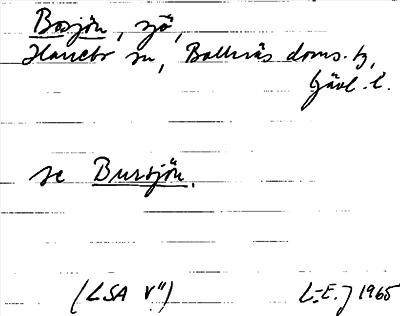 Bosjön, sjö,
Hanebo sn, Bollnäs doms.h,
Gävl. l.
se Bursjön.
(LSA V")
L-E.J 1965